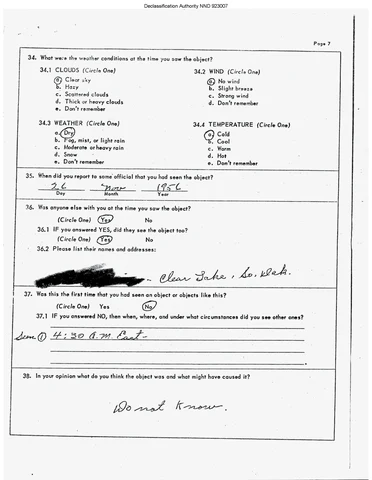 Declassification Authority NND 923007
Page 7
34. What were the weather conditions at the time you saw the object?
34.1 CLOUDS (Circle One)
a. Clear sky
b. Hazy
c. Scattered clouds
d. Thick or heavy clouds
e. Don't remember
34.2 WIND (Circle One)
a. No wind
b. Slight breeze
c. Strong wind
d. Don't remember
34.3 WEATHER (Circle One)
a. Dry
b. Fog, mist, or light rain
c. Moderate or heavy rain
d. Snow
e. Don't remember
34.4 TEMPERATURE (Circle One)
a. Cold
b. Cool
c. Warm
d. Hot
e. Don't remember
35. When did you report to some official that you had seen the object?
26 Nov 1956
Day Month Year
36. Was anyone else with you at the time you saw the object?
(Circle One) Yes No
36.1 IF you answered YES, did they see the object too?
(Circle One) Yes No
36.2 Please list their names and addresses:
Clear Lake, So. Dak.
37. Was this the first time that you had seen an object or objects like this?
(Circle One) Yes No
37.1 IF you answered NO, then when, where, and under what circumstances did you see other ones?
Seen 1 4:30 A.M. East-
38. In your opinion what do you think the object was and what might have caused it?
Do not know.